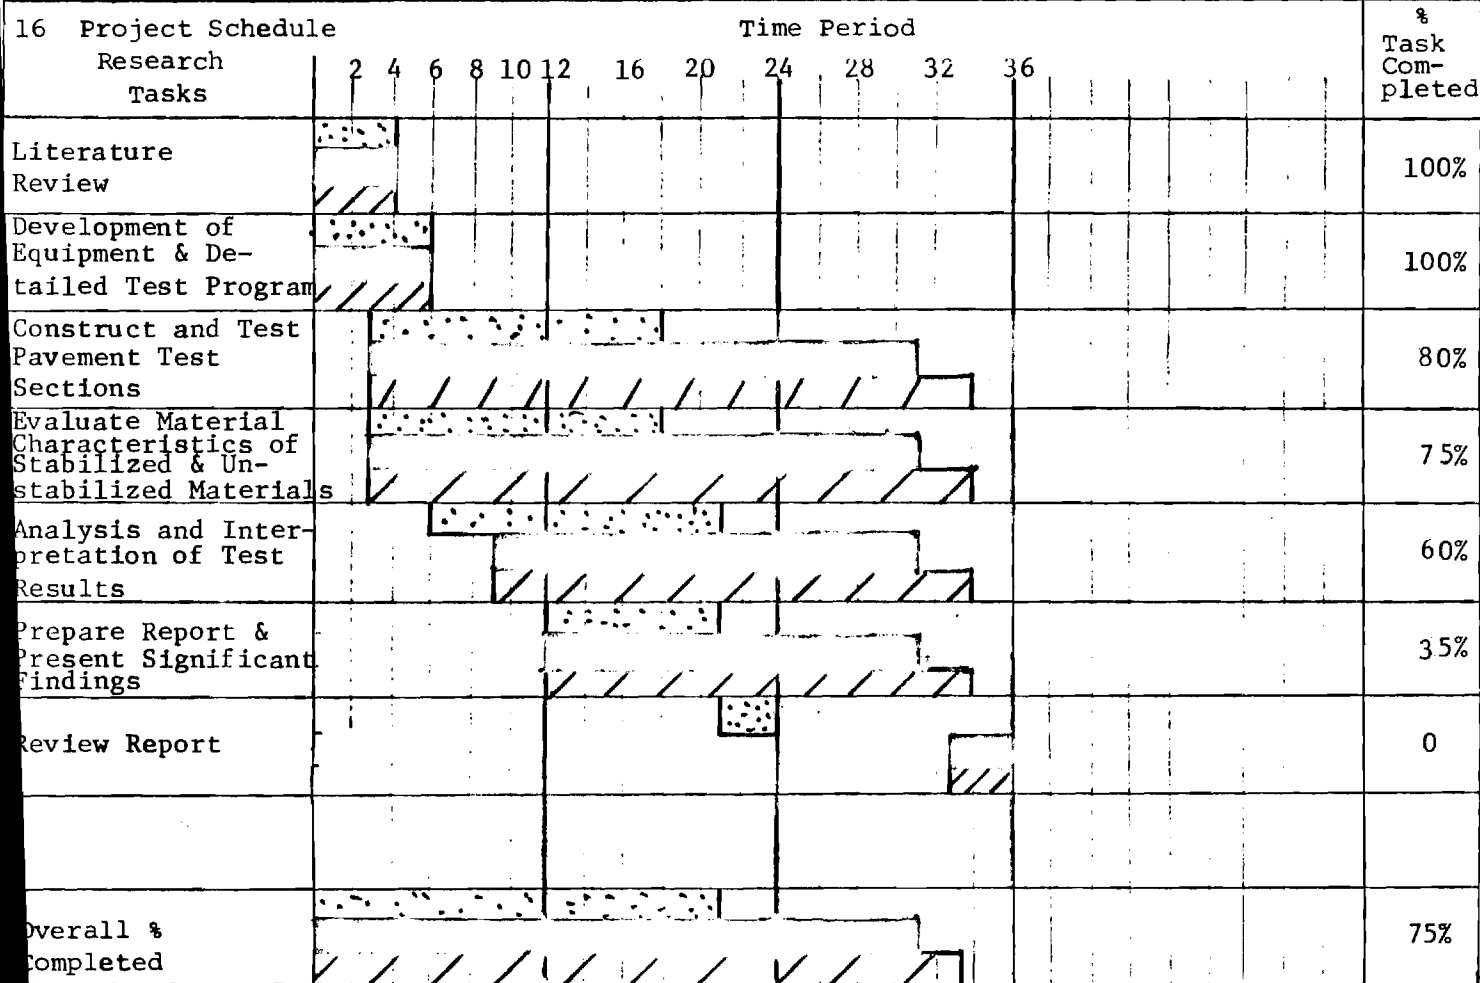 16 Project Schedule
Time Period
%
Task
Com-
pleted
Research
Tasks
2 4 6 8 10 12 16 20 24 28 32 36
Literature
Review
100%
Development of
Equipment & De-
tailed Test Program
100%
Construct and Test
Pavement Test
Sections
80%
Evaluate Material
Characteristics of
Stabilized & Un-
stabilized Materials
75%
Analysis and Inter-
pretation of Test
Results
60%
Prepare Report &
Present Significant
Findings
35%
Review Report
0
Overall %
Completed
75%